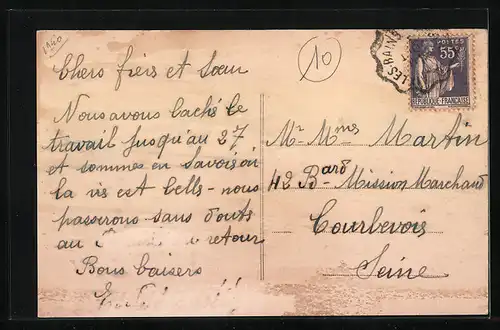 1940
10
Chers frèrs et Sœur
Nous avons laché le
travail jusqu'au 27
et sommes en Savois où
la vis est bells - nous
passirons sans douts
au retour
Bons baisers
LES-BAINS
POSTES
55c
REPUBLIQUE FRANÇAISE
Mr Mms Martin
42 Bard Mission Marchand
Courbevois
Seine